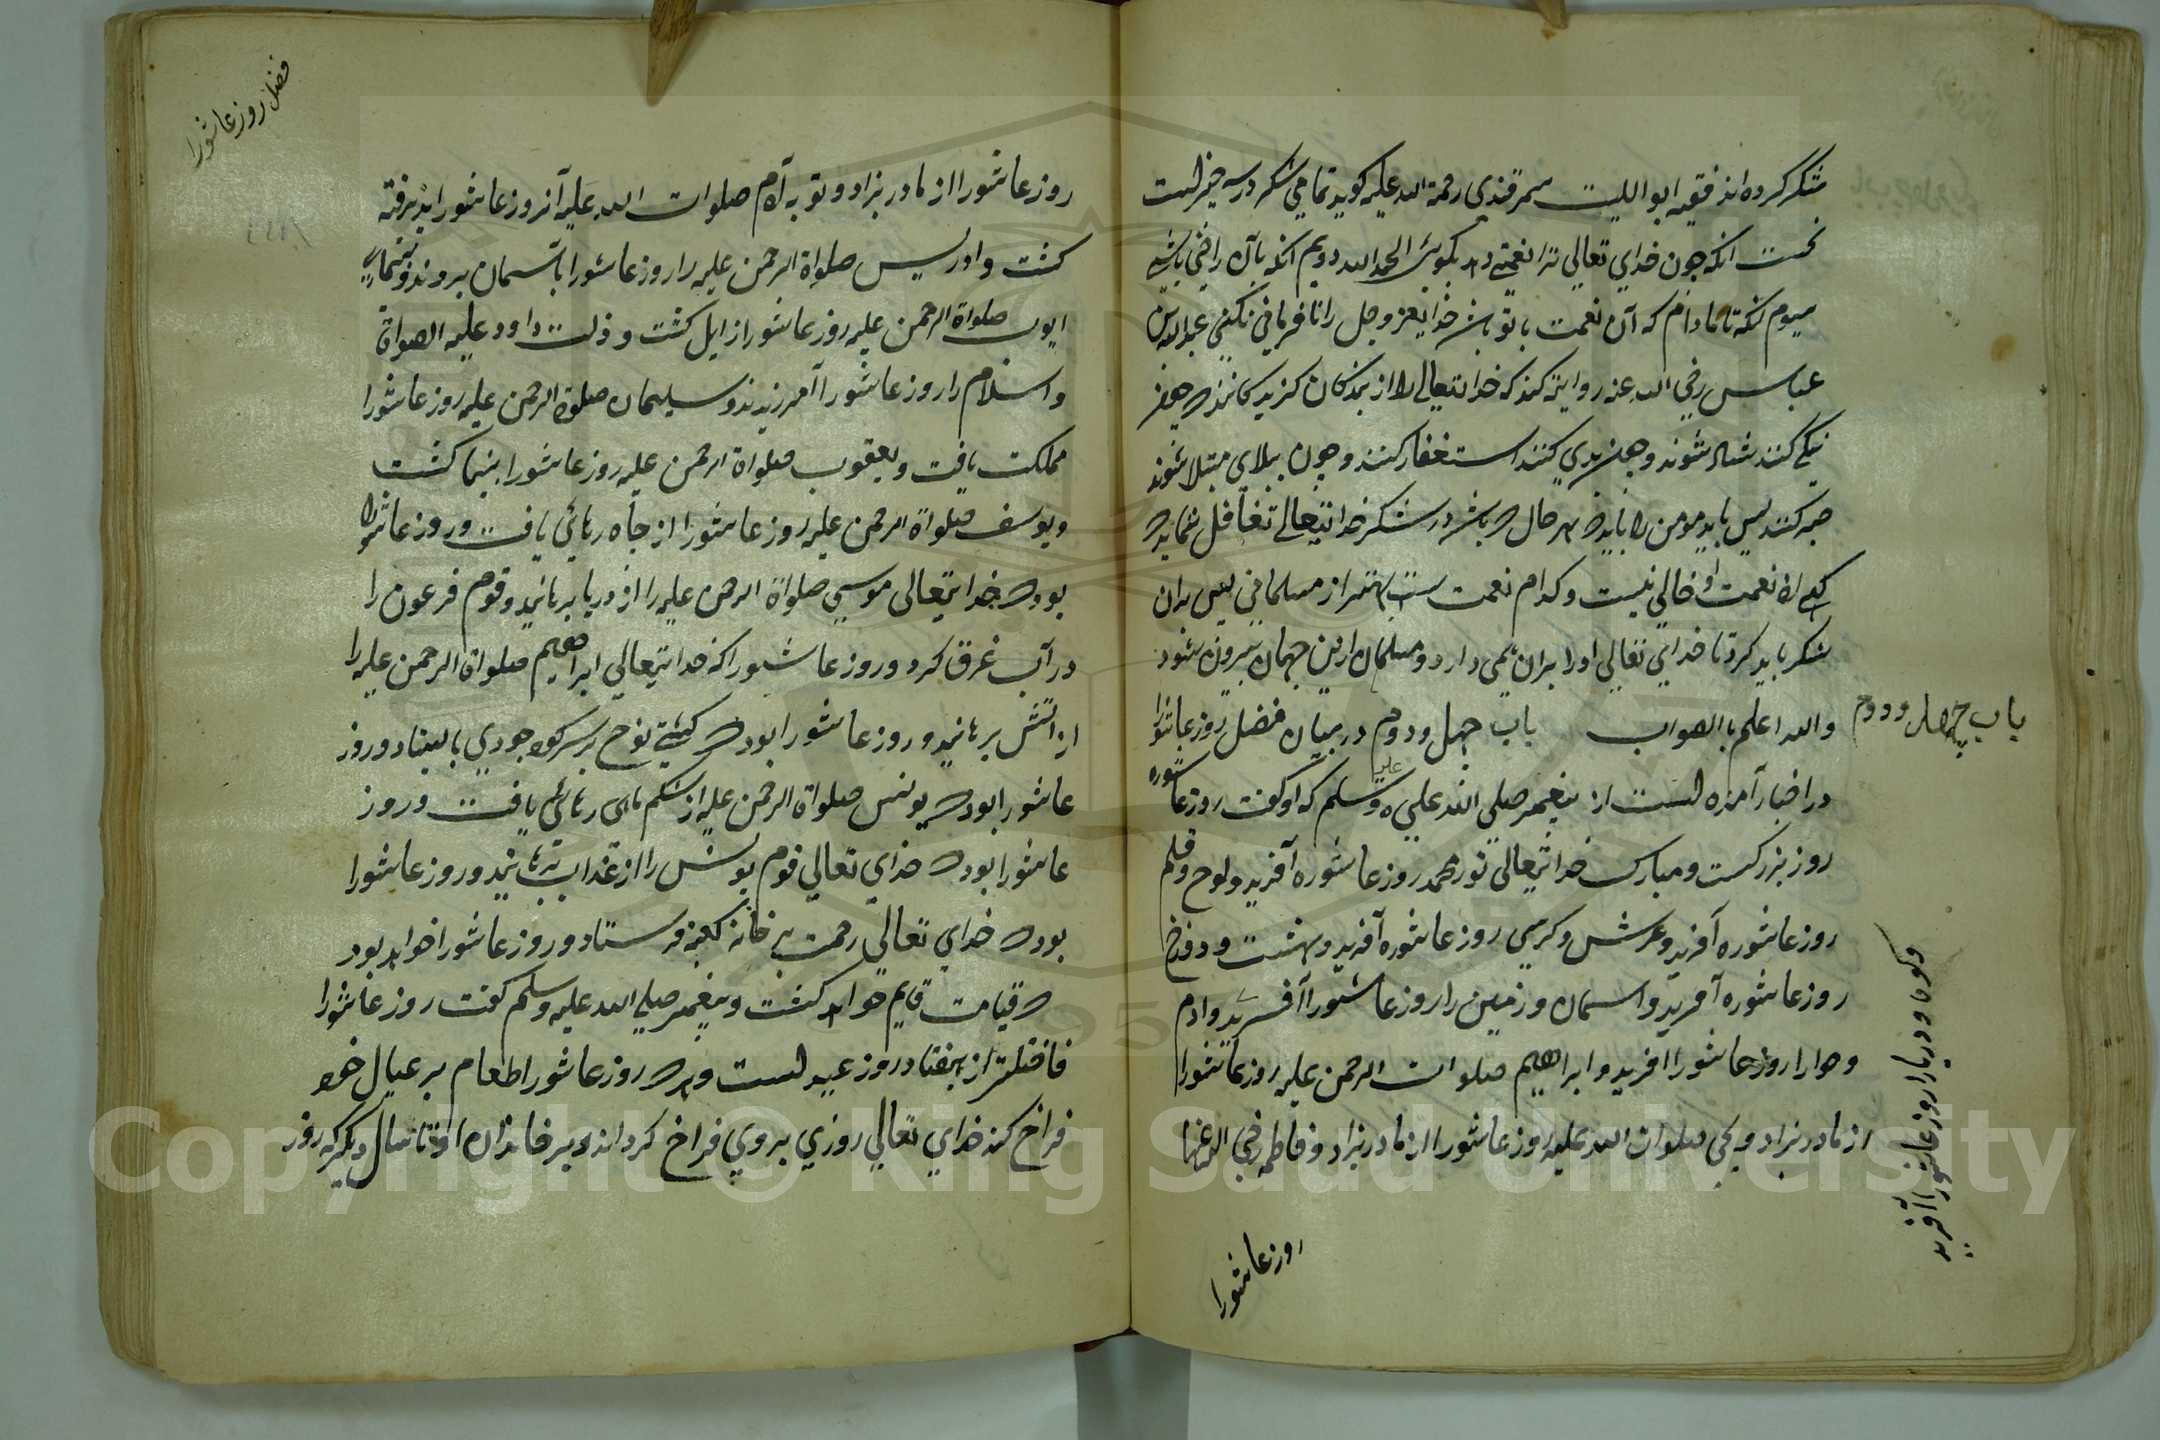 شکر کرده اند فقیه ابو اللیث سمرقندی رحمة الله علیه کوید تمامی شکر در سه چیز است
نخست انکه چون خدای تعالی ترا نعمتی دهد بکوئی الحمد الله دویم انکه بآن راضی باشی
سیوم انکه تا مادام که آن نعمت با تو باشد خدایعز وجل را نافرمانی نکنی عبدالله بن
عباس رضی الله عنه روایت کند که خدایتعالی را از بندکان کزیدکانند که چون
نیکی کنند شاد شوند و چون بدی کنند استغفار کنند و چون ببلای مبتلا شوند
صبر کنند پس باید مومن را باید که بهر حال که باشد در شکر خدایتعالی تغافل ننماید که
کسی از نعمت او خالی نیست و کدام نعمت است بهتر از مسلمانی پس بران
شکر باید کرد تا خدای تعالی اورا بران نکهی دارد و مسلمان ازین جهان بیرون شود
والله اعلم باالصواب باب چهل و دوم در بیان فضل روز عاشورا
باب چهل و دوم
در اخبار آمده است از پیغمبر صلی الله علیه وسلم که او کفت روز عاشوره
روز بزرکست و مبارک خدایتعالی نور محمد روز عاشوره آفرید و لوح و قلم
روز عاشوره آفرید و عرش و کرسی روز عاشوره آفرید و بهشت و دوزخ
روز عاشوره آفرید و اسمان و زمین را روز عاشورا آفرید و ادم
وحوا را روز عاشورا افرید و ابراهیم صلوات الرحمن علیه روز عاشورا
از مادر بزاد و یحی صلوات الله علیه روز عاشورا از مادر بزاد و فاطمه رضی الله عنها
وکوه ها و دریا را روز عاشورا آفرید
روز عاشورا
فضل روز عاشورا
روز عاشورا از مادر بزاد و توبه آدم صلوات الله علیه آنروز عاشورا پذیرفته
کشت و ادریس صلواة الرحمن علیه را روز عاشورا بآسمان بردند و بیماری
ایوب صلواة الرحمن علیه روز عاشورا زایل کشت و ذلت داود علیه الصلواة
والسلام را روز عاشورا آمرزیدند و سلیمان صلوة الرحمن علیه روز عاشورا
مملکت یافت و یعقوب صلواة الرحمن علیه روز عاشورا بینا کشت
و یوسف صلواة الرحمن علیه روز عاشورا از جاه رهائی یافت و روز عاشورا
بود که خدایتعالی موسی صلواة الرحمن علیه را از دریا برهانید و قوم فرعون را
در آب غرق کرد و روز عاشورا که خدایتعالی ابراهیم صلواة الرحمن علیه را
از اتش برهانید و روز عاشورا بود که کشتی نوح بر سر کوه جودی باایستاد و روز
عاشورا بود که یونس صلواة الرحمن علیه از شکم ماهی رهائی یافت و روز
عاشورا بود که خدای تعالی قوم یونس را از عذاب برهانید و روز عاشورا
بود که خدای تعالی رحمت بی خانه کعبه فرستاد و روز عاشورا خواهد بود
که قیامت قایم خواهد کشت و پیغمبر صلی الله علیه وسلم کفت روز عاشورا
فاضلتر از هفتاد روز عید است و هر که روز عاشورا طعام بر عیال خود
فراخ کند خدای تعالی روزی بر وی فراخ کرداند و بر خاندان او تا سال دیکر که روز
Copyright © King Saud University